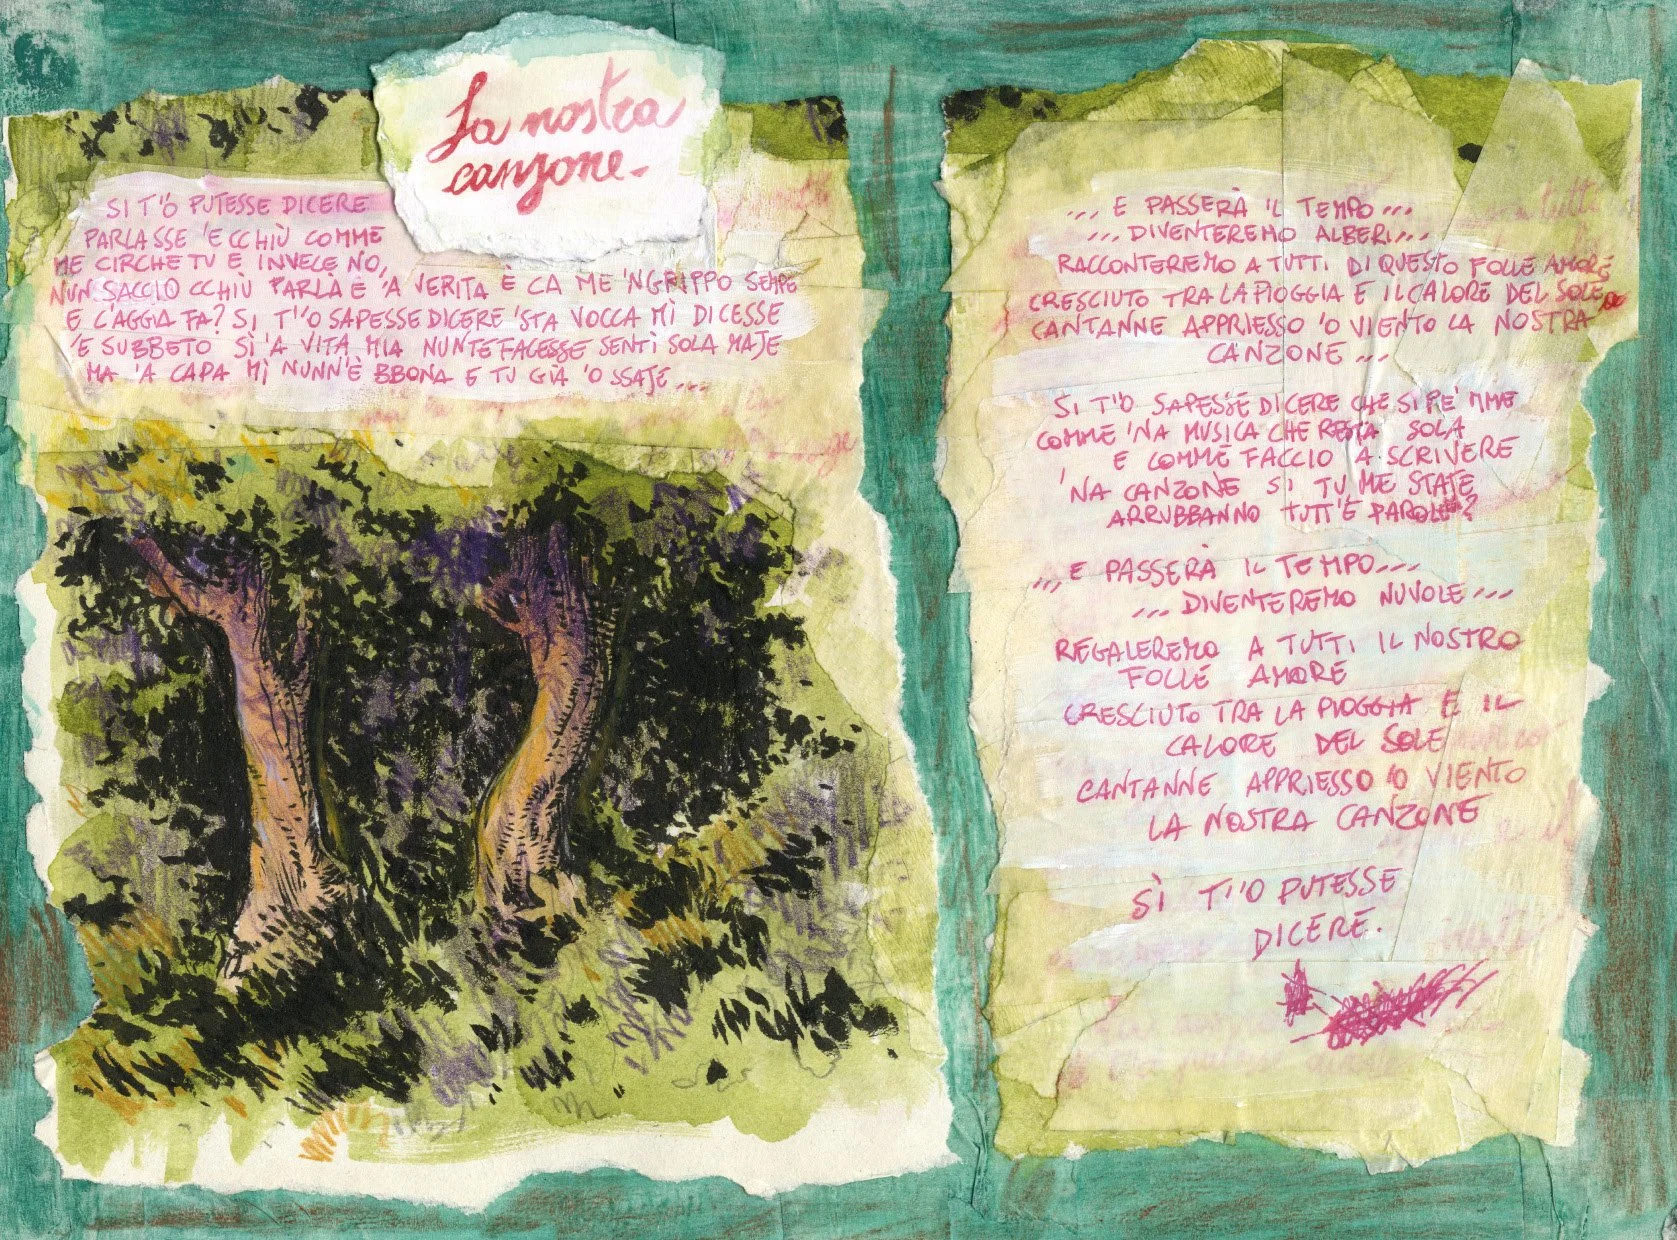 La nostra
canzone.
SI T''O PUTESSE DICERE
PARLASSE 'E CCHIÙ COMME
ME CIRCHE TU E INVECE NO,
NUN SACCIO CCHIÙ PARLÀ E 'A VERITA È CA ME 'NGRIPPO SEMPE
E C'AGGIA FA? SI T''O SAPESSE DICERE 'STA VOCCA MÌ DICESSE
'E SUBBETO SÌ 'A VITA MIA NUN TE FACESSE SENTÌ SOLA MAJE
MA 'A CAPA MÌ NUNN'È BBONA E TU GIÀ 'O SSAJE...
... E PASSERÀ IL TEMPO...
... DIVENTEREMO ALBERI...
RACCONTEREMO A TUTTI DI QUESTO FOLLE AMORE
CRESCIUTO TRA LA PIOGGIA E IL CALORE DEL SOLE
CANTANNE APPRIESSO 'O VIENTO LA NOSTRA
CANZONE...
SI T''O SAPESSE DICERE CHE SI PE' MME
COMME 'NA MUSICA CHE RESTA SOLA
E COMME FACCIO A SCRIVERE
'NA CANZONE SI TU ME STAJE
ARRUBBANNO TUTT'E PAROLE?
... E PASSERÀ IL TEMPO...
... DIVENTEREMO NUVOLE...
REGALEREMO A TUTTI IL NOSTRO
FOLLE AMORE
CRESCIUTO TRA LA PIOGGIA E IL
CALORE DEL SOLE
CANTANNE APPRIESSO 'O VIENTO
LA NOSTRA CANZONE
SÌ T''O PUTESSE
DICERE.